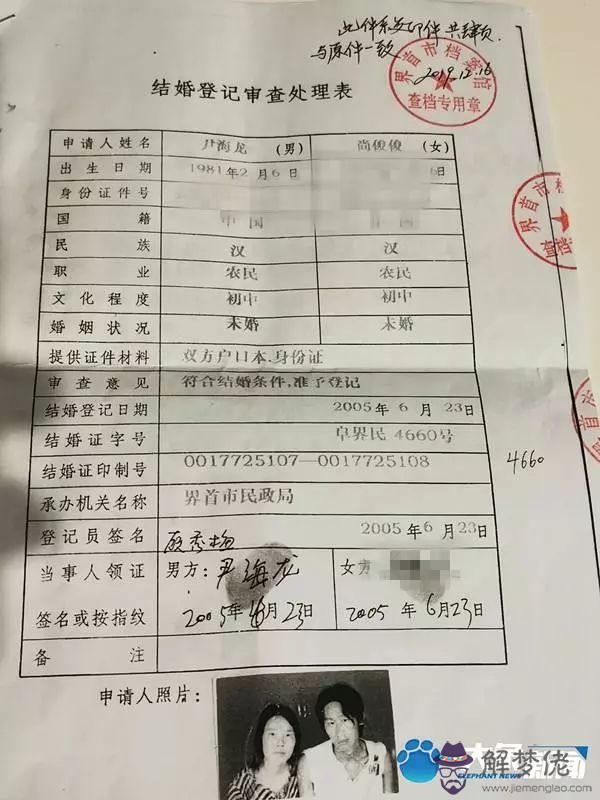 此件系复印件共肆页
与原件一致
2019.12.16
界首市档案馆
查档专用章
结婚登记审查处理表
申请人姓名 尹海龙 (男) 尚俊俊 (女)
出生日期 1981年2月6日 6日
身份证件号
国籍 中国
民族 汉 汉
职业 农民 农民
文化程度 初中 初中
婚姻状况 未婚 未婚
提供证件材料 双方户口本.身份证
审查意见 符合结婚条件,准予登记
结婚登记日期 2005年6月23日
结婚证字号 阜界民 4660号
4660
结婚证印制号 0017725107—0017725108
承办机关名称 界首市民政局
登记员签名 2005年6月23日
当事人领证 男方:尹海龙 女方
签名或按指纹 2005年6月23日 2005年6月23日
备注
申请人照片:
大象新闻
ELEPHANT NEWS
解梦佬
www.jiemenglao.com